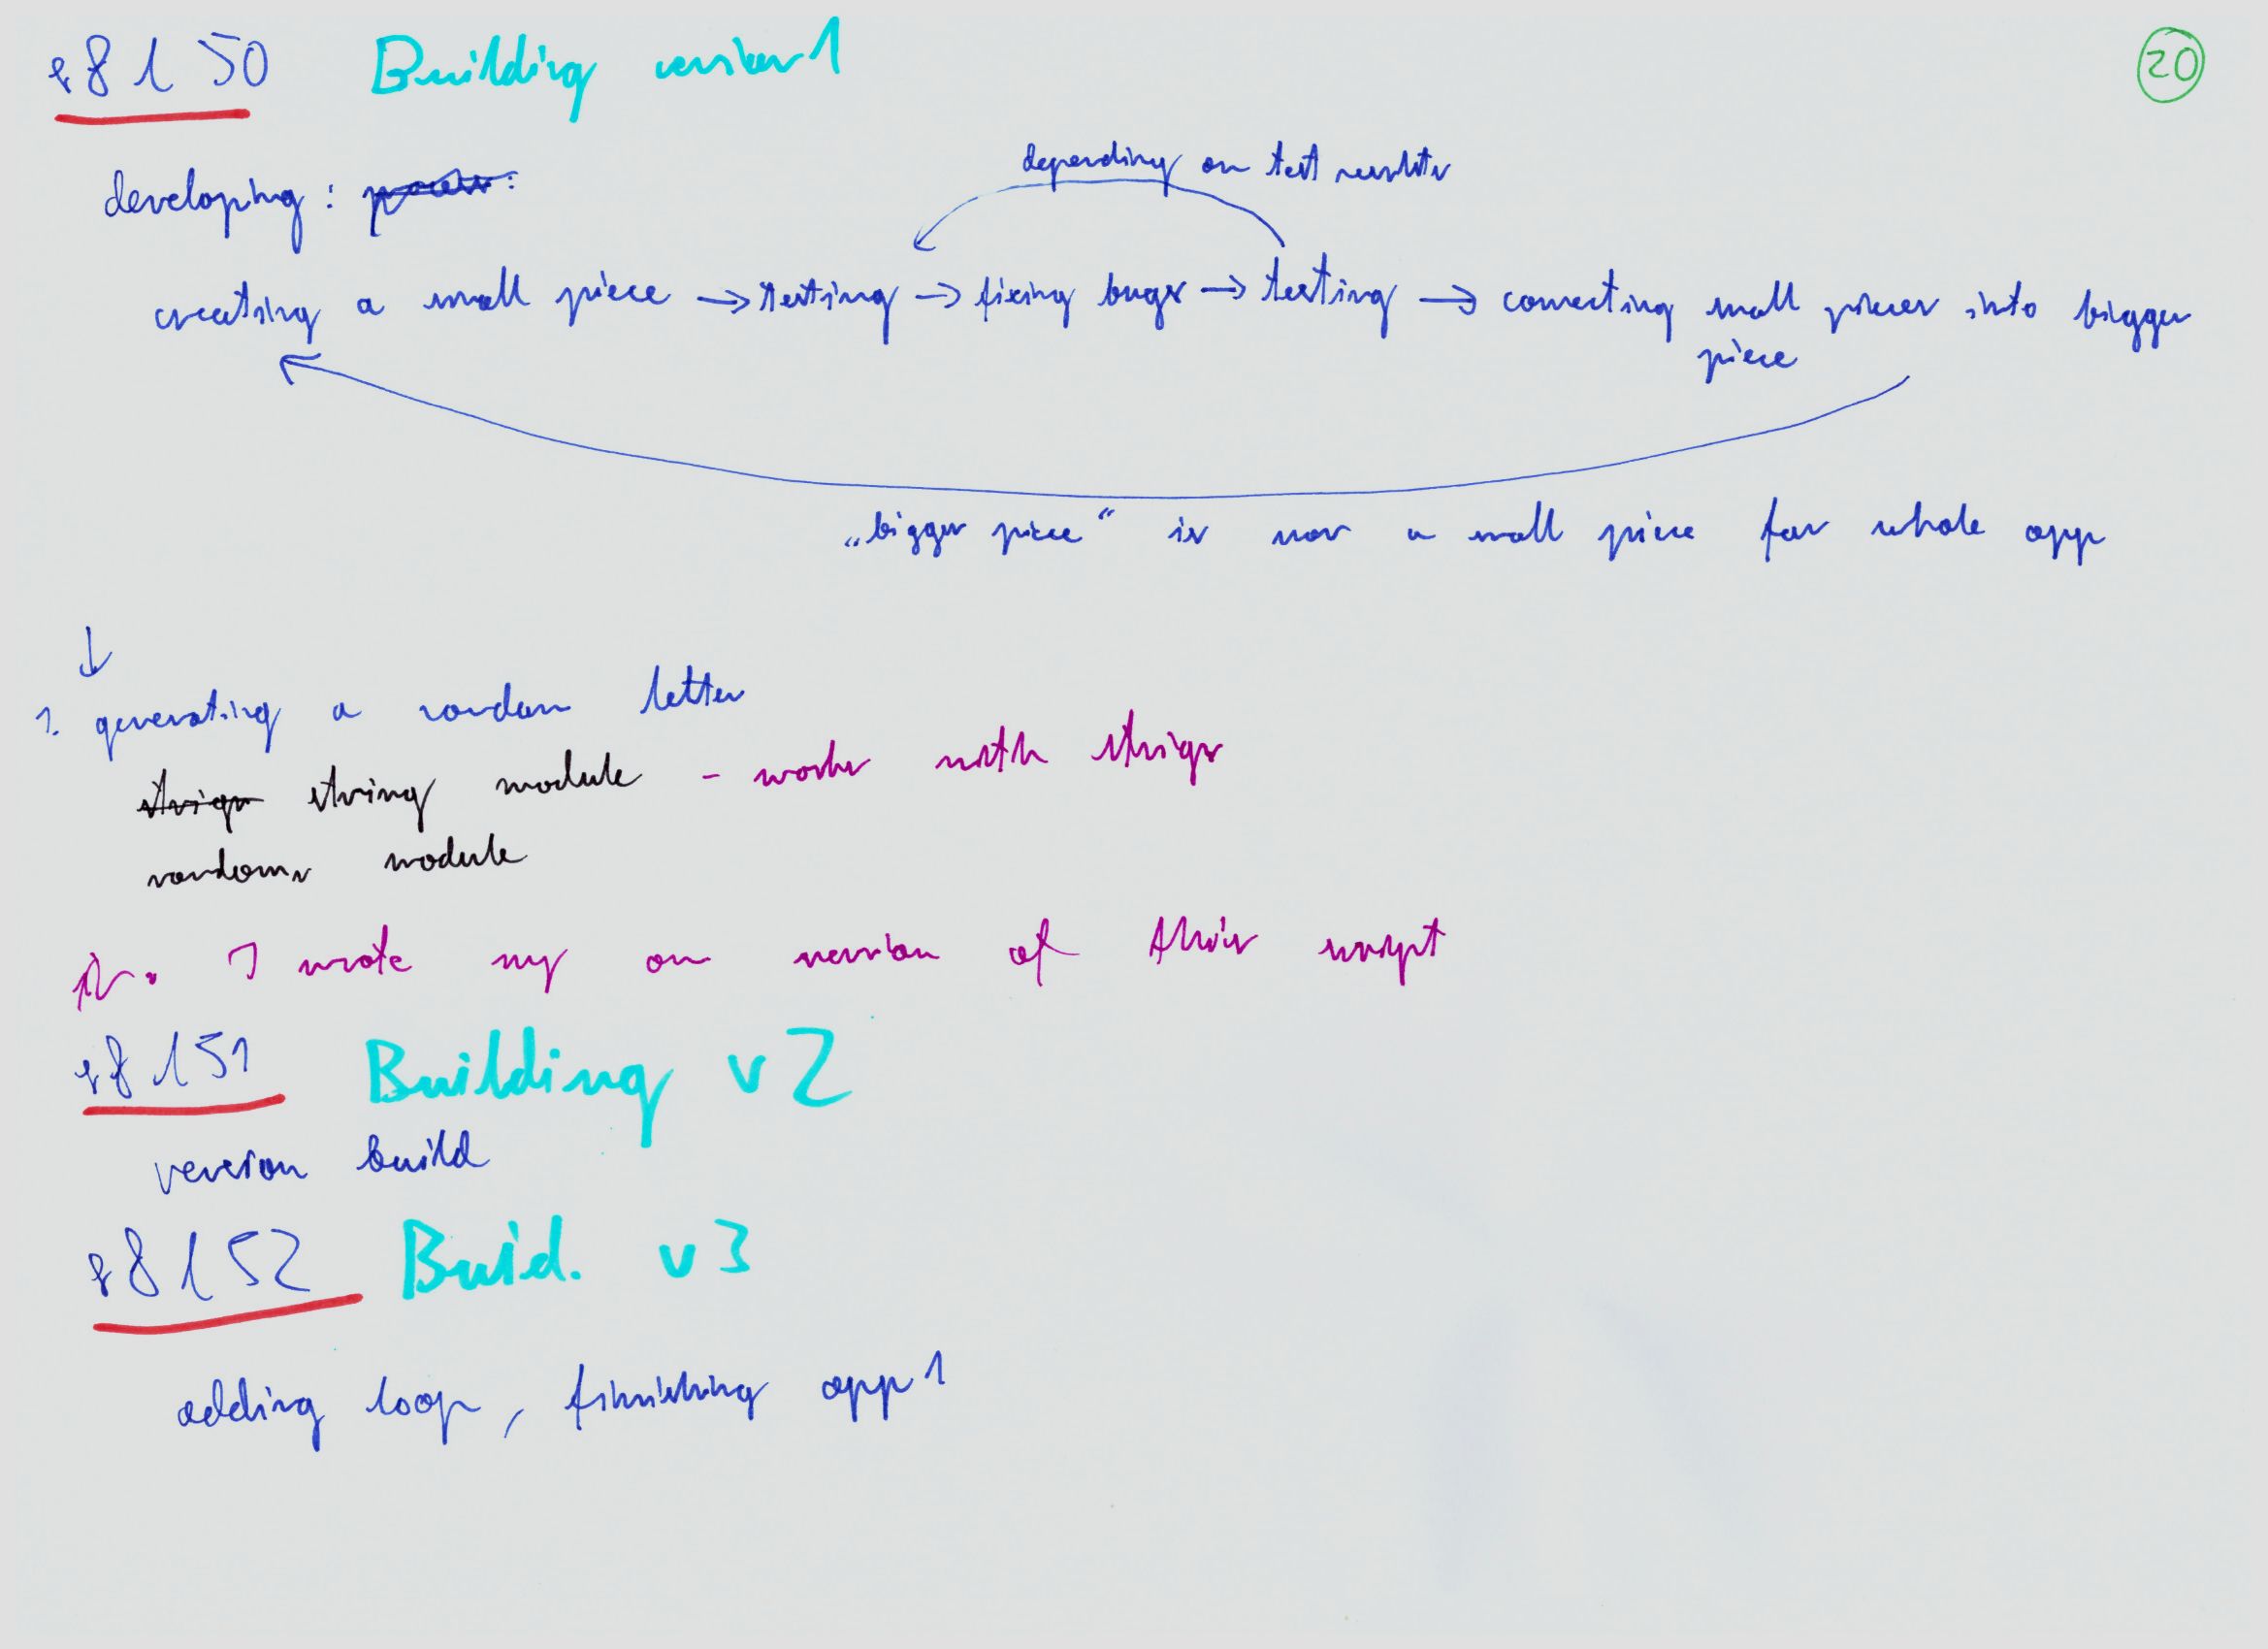 s8150 Building version 1
20
developing:
depending on test results
creating a small piece → testing → fixing bugs → testing → connecting small pieces into bigger
piece
„bigger piece“ is now a small piece for whole app
↓
1. generating a random letter
string module - works with strings
random module
I wrote my on version of this script
s8151 Building v2
version build
s8152 Buid. v3
adding loop, finishing app 1